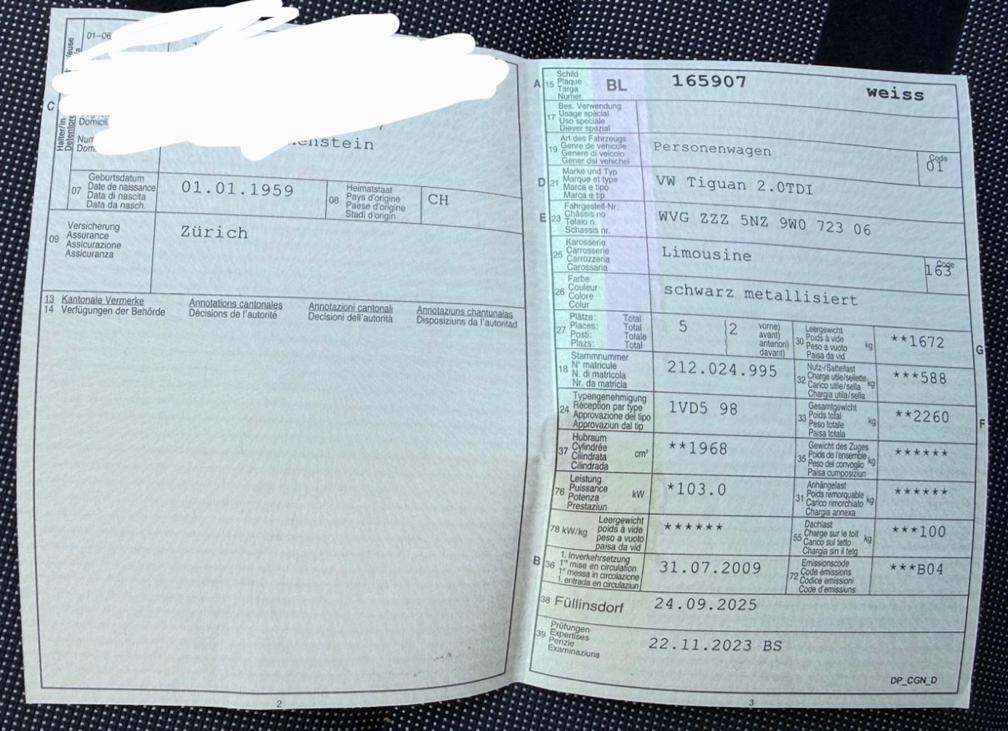 01-06
C
Halter/in
Domicil
enstein
07
Geburtsdatum
Date de naissance
Data di nascita
Data da nasch.
01.01.1959
08
Heimatstaat
Pays d'origine
Paese d'origine
Stadi d'origin
CH
09
Versicherung
Assurance
Assicurazione
Assicuranza
Zürich
13
14
Kantonale Vermerke
Verfügungen der Behörde
Annotations cantonales
Décisions de l'autorité
Annotazioni cantonali
Decisioni dell'autorità
Annotaziuns chantunalas
Disposiziuns da l'autoritad
2
A 15
Schild
Plaque
Targa
Numer
BL 165907 weiss
17
Bes. Verwendung
Usage spécial
Uso speciale
Diever spezial
19
Art des Fahrzeugs
Genre de véhicule
Genere di veicolo
Gener dal vehichel
Personenwagen
Code
01
D 21
Marke und Typ
Marque et type
Marca e tipo
Marca e tip
VW Tiguan 2.0TDI
E 23
Fahrgestell-Nr.
Châssis no
Telaio n.
Schassis nr.
WVG ZZZ 5NZ 9W0 723 06
25
Karosserie
Carrosserie
Carrozzeria
Carossaria
Limousine
Code
163
26
Farbe
Couleur
Colore
Colur
schwarz metallisiert
27
Plätze: Total
Places: Total
Posti: Totale
Plazs: Total
5
2
vorne)
avant)
anteriori)
davant)
30
Leergewicht
Poids à vide
Peso a vuoto
Paisa da vid
kg
**1672
G
18
Stammnummer
N° matricule
N. di matricola
Nr. da matricla
212.024.995
32
Nutz-/Sattellast
Charge utile/sellette
Carico utile/sella
Chargia utila/sella
kg
***588
24
Typengenehmigung
Réception par type
Approvazione del tipo
Approvaziun dal tip
1VD5 98
33
Gesamtgewicht
Poids total
Peso totale
Paisa totala
kg
**2260
F
37
Hubraum
Cylindrée
Cilindrata
Cilindrada
cm³
**1968
35
Gewicht des Zuges
Poids de l'ensemble
Peso del convoglio
Paisa cumposiziun
kg
******
76
Leistung
Puissance
Potenza
Prestaziun
kW
*103.0
31
Anhängelast
Poids remorquable
Carico rimorchiato
Chargia annexa
kg
******
78 kW/kg
Leergewicht
poids à vide
peso a vuoto
paisa da vid
******
55
Dachlast
Charge sur le toit
Carico sul tetto
Chargia sin il tetg
kg
***100
B 36
1. Inverkehrsetzung
1re mise en circulation
1a messa in circolazione
1. entrada en circulaziun
31.07.2009
72
Emissionscode
Code émissions
Codice emissioni
Code d'emissiuns
***B04
38 Füllinsdorf 24.09.2025
39
Prüfungen
Expertises
Perizie
Examinaziuns
22.11.2023 BS
DP_CGN_D
3